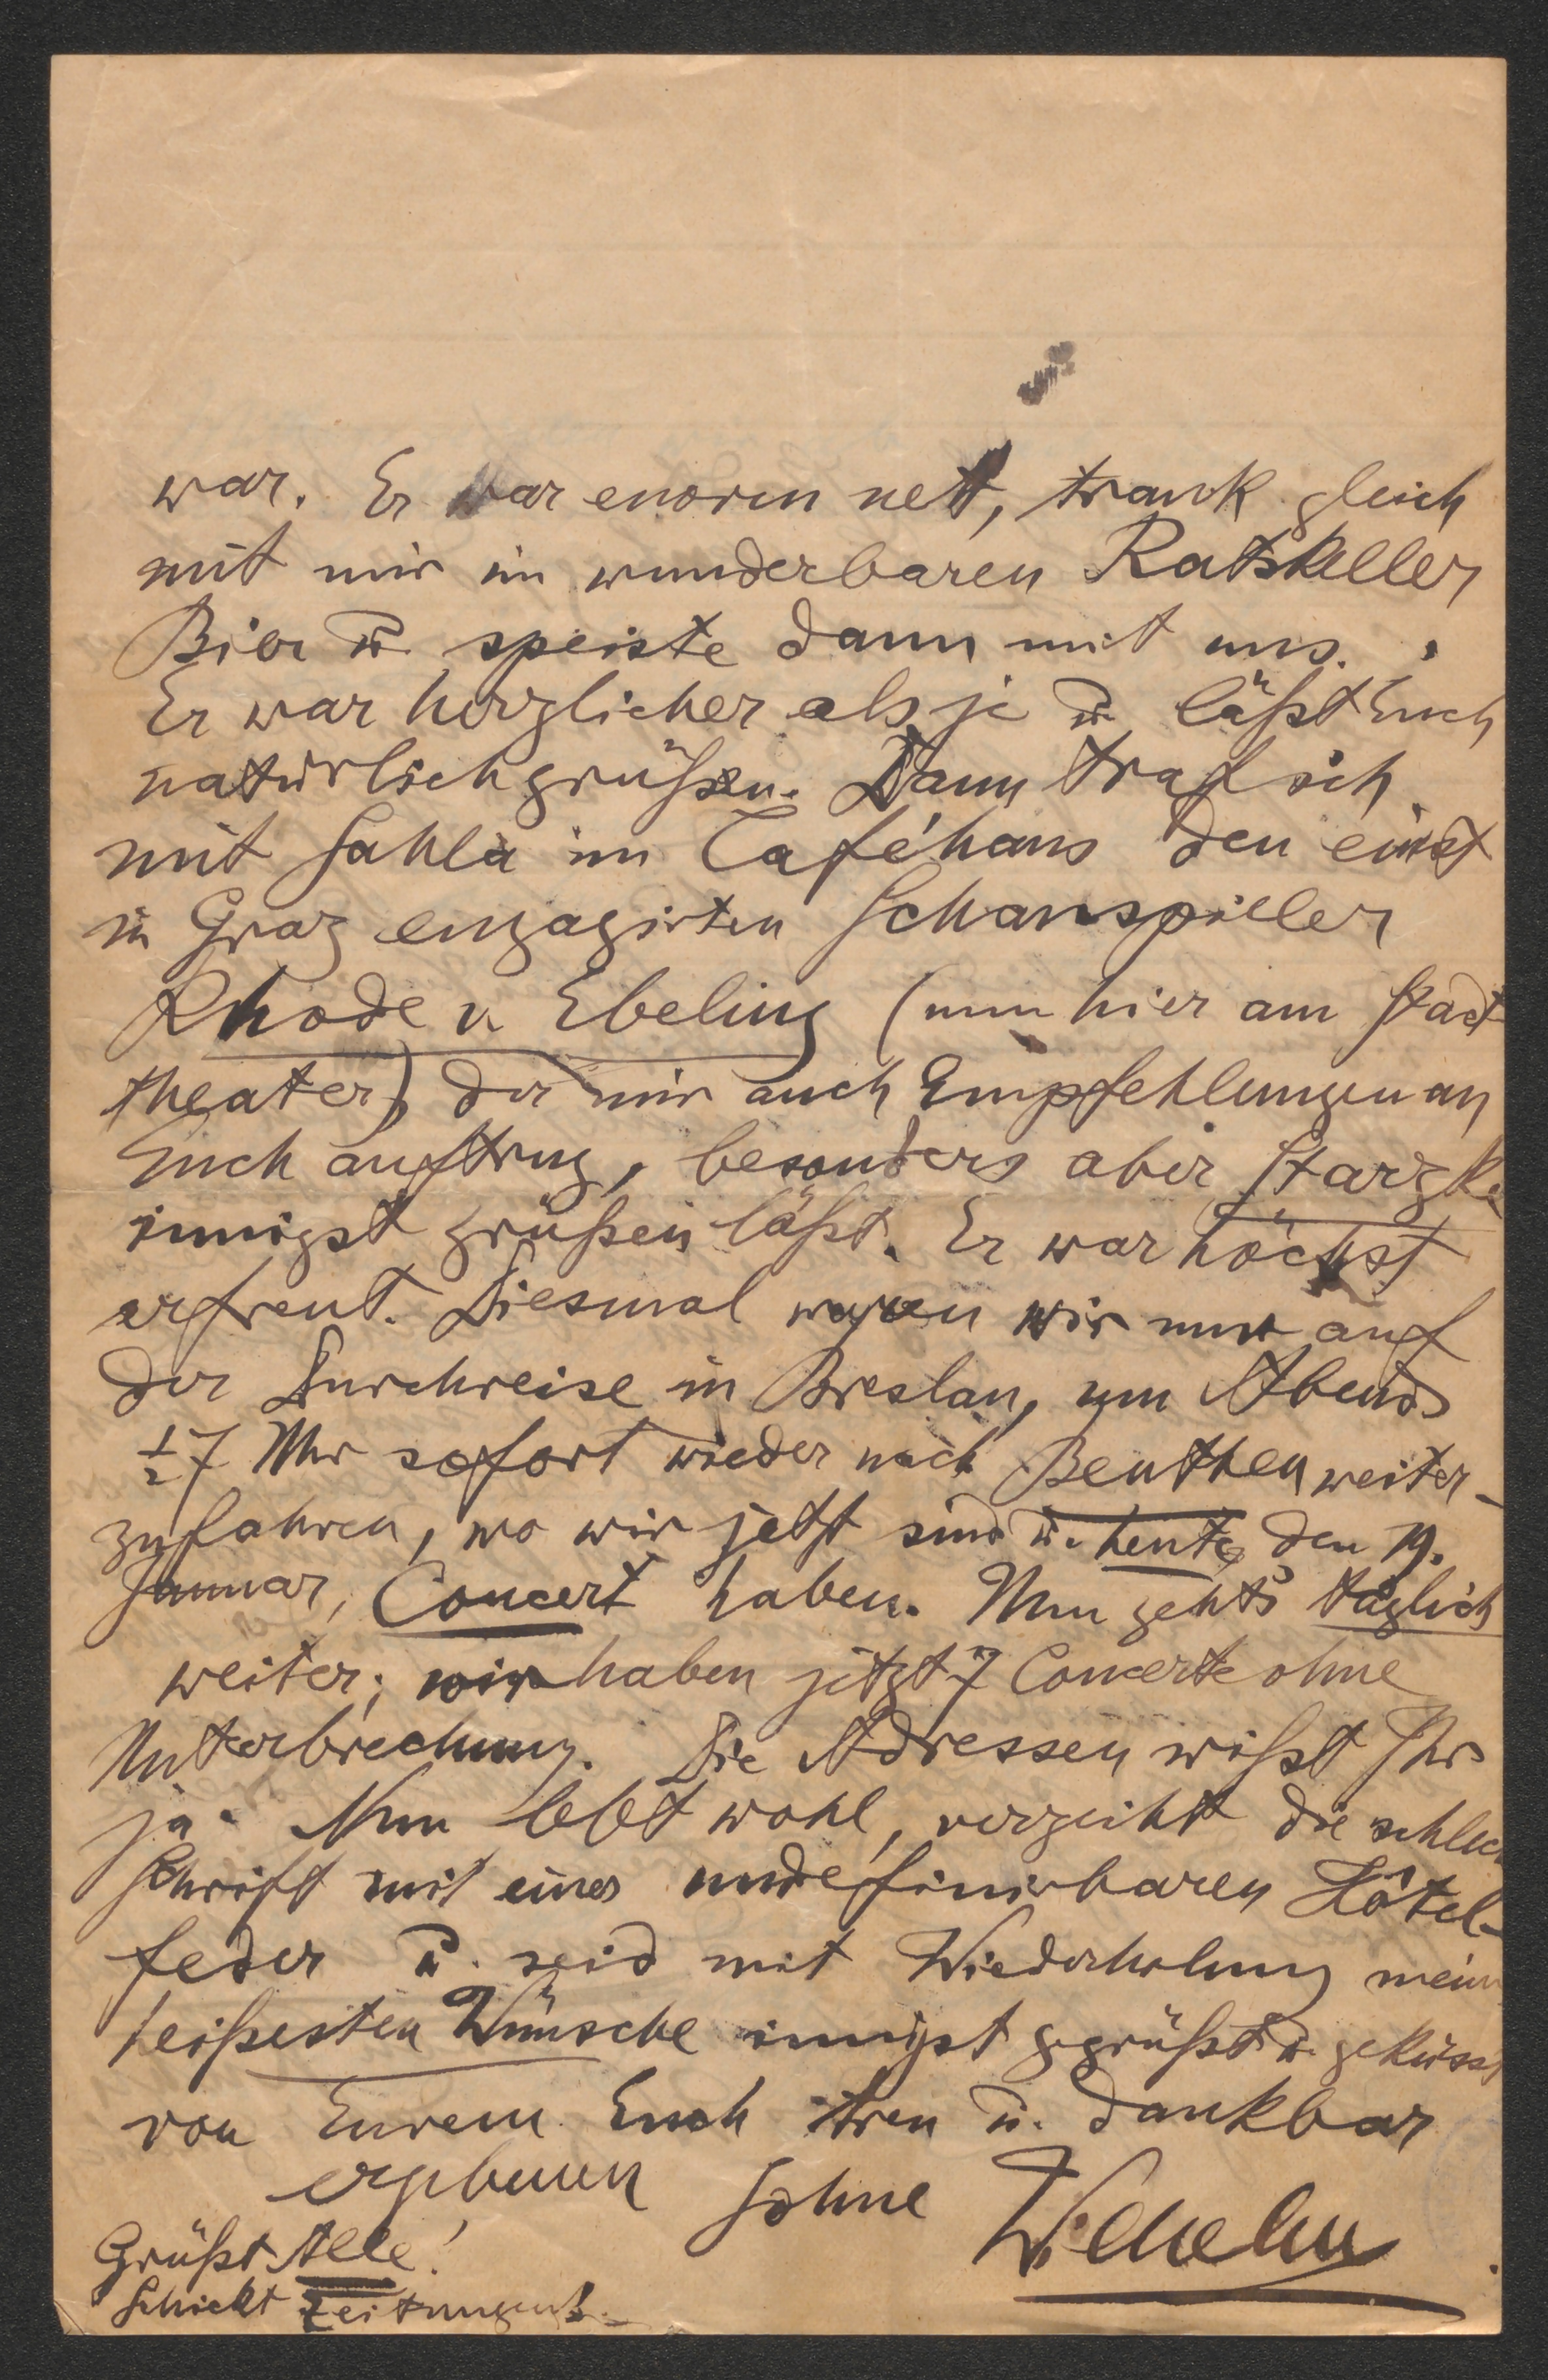 war. Er war enorm nett, trank gleich
mit mir im wunderbaren Ratskeller
Bier u. speiste dann mit uns.
Er war herzlicher als je u. läßt Euch
natürlich grüßen. Dann traf ich
mit Sahla im Caféhaus den einst
in Graz engagirten Schauspieler
Rhode v. Ebeling (nun hier am Stadt
theater), der mir auch Empfehlungen an
Euch auftrug, besonders aber
innigst grüßen läßt. Er war höchst
erfreut. Diesmal waren wir nur auf
der Durchreise in Breslau, um Abends
½7 Uhr sofort wieder nach Beuthen weiter-
zufahren, wo wir jetzt sind u. heute, den 19.
Januar, Concert haben. Nun geht's täglich
weiter; wir haben jetzt 7 Concerte ohne
Unterbrechung. Die Adressen wißt Ihr
ja. Nun lebt wohl, verzeiht die schlech
Schrift mit einer undefinirbaren Hôtel-
feder u. seid mit Wiederholung mein
heißesten Wünsche innigst gegrüßt u. geküsst
von Eurem Euch treu u. dankbar
ergebenen Sohne Wilhelm
Grüßt Alle!
Schickt Zeitungen!